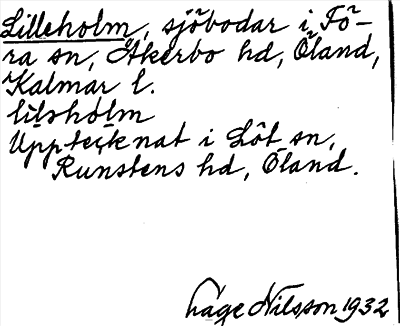 Lilleholm, sjöbodar i Fö-
ra sn, Åkerbo hd, Öland,
Kalmar l.
lilshòlm
Upptecknat i Löt sn,
Runstens hd, Öland.
Åge Nilsson 1932